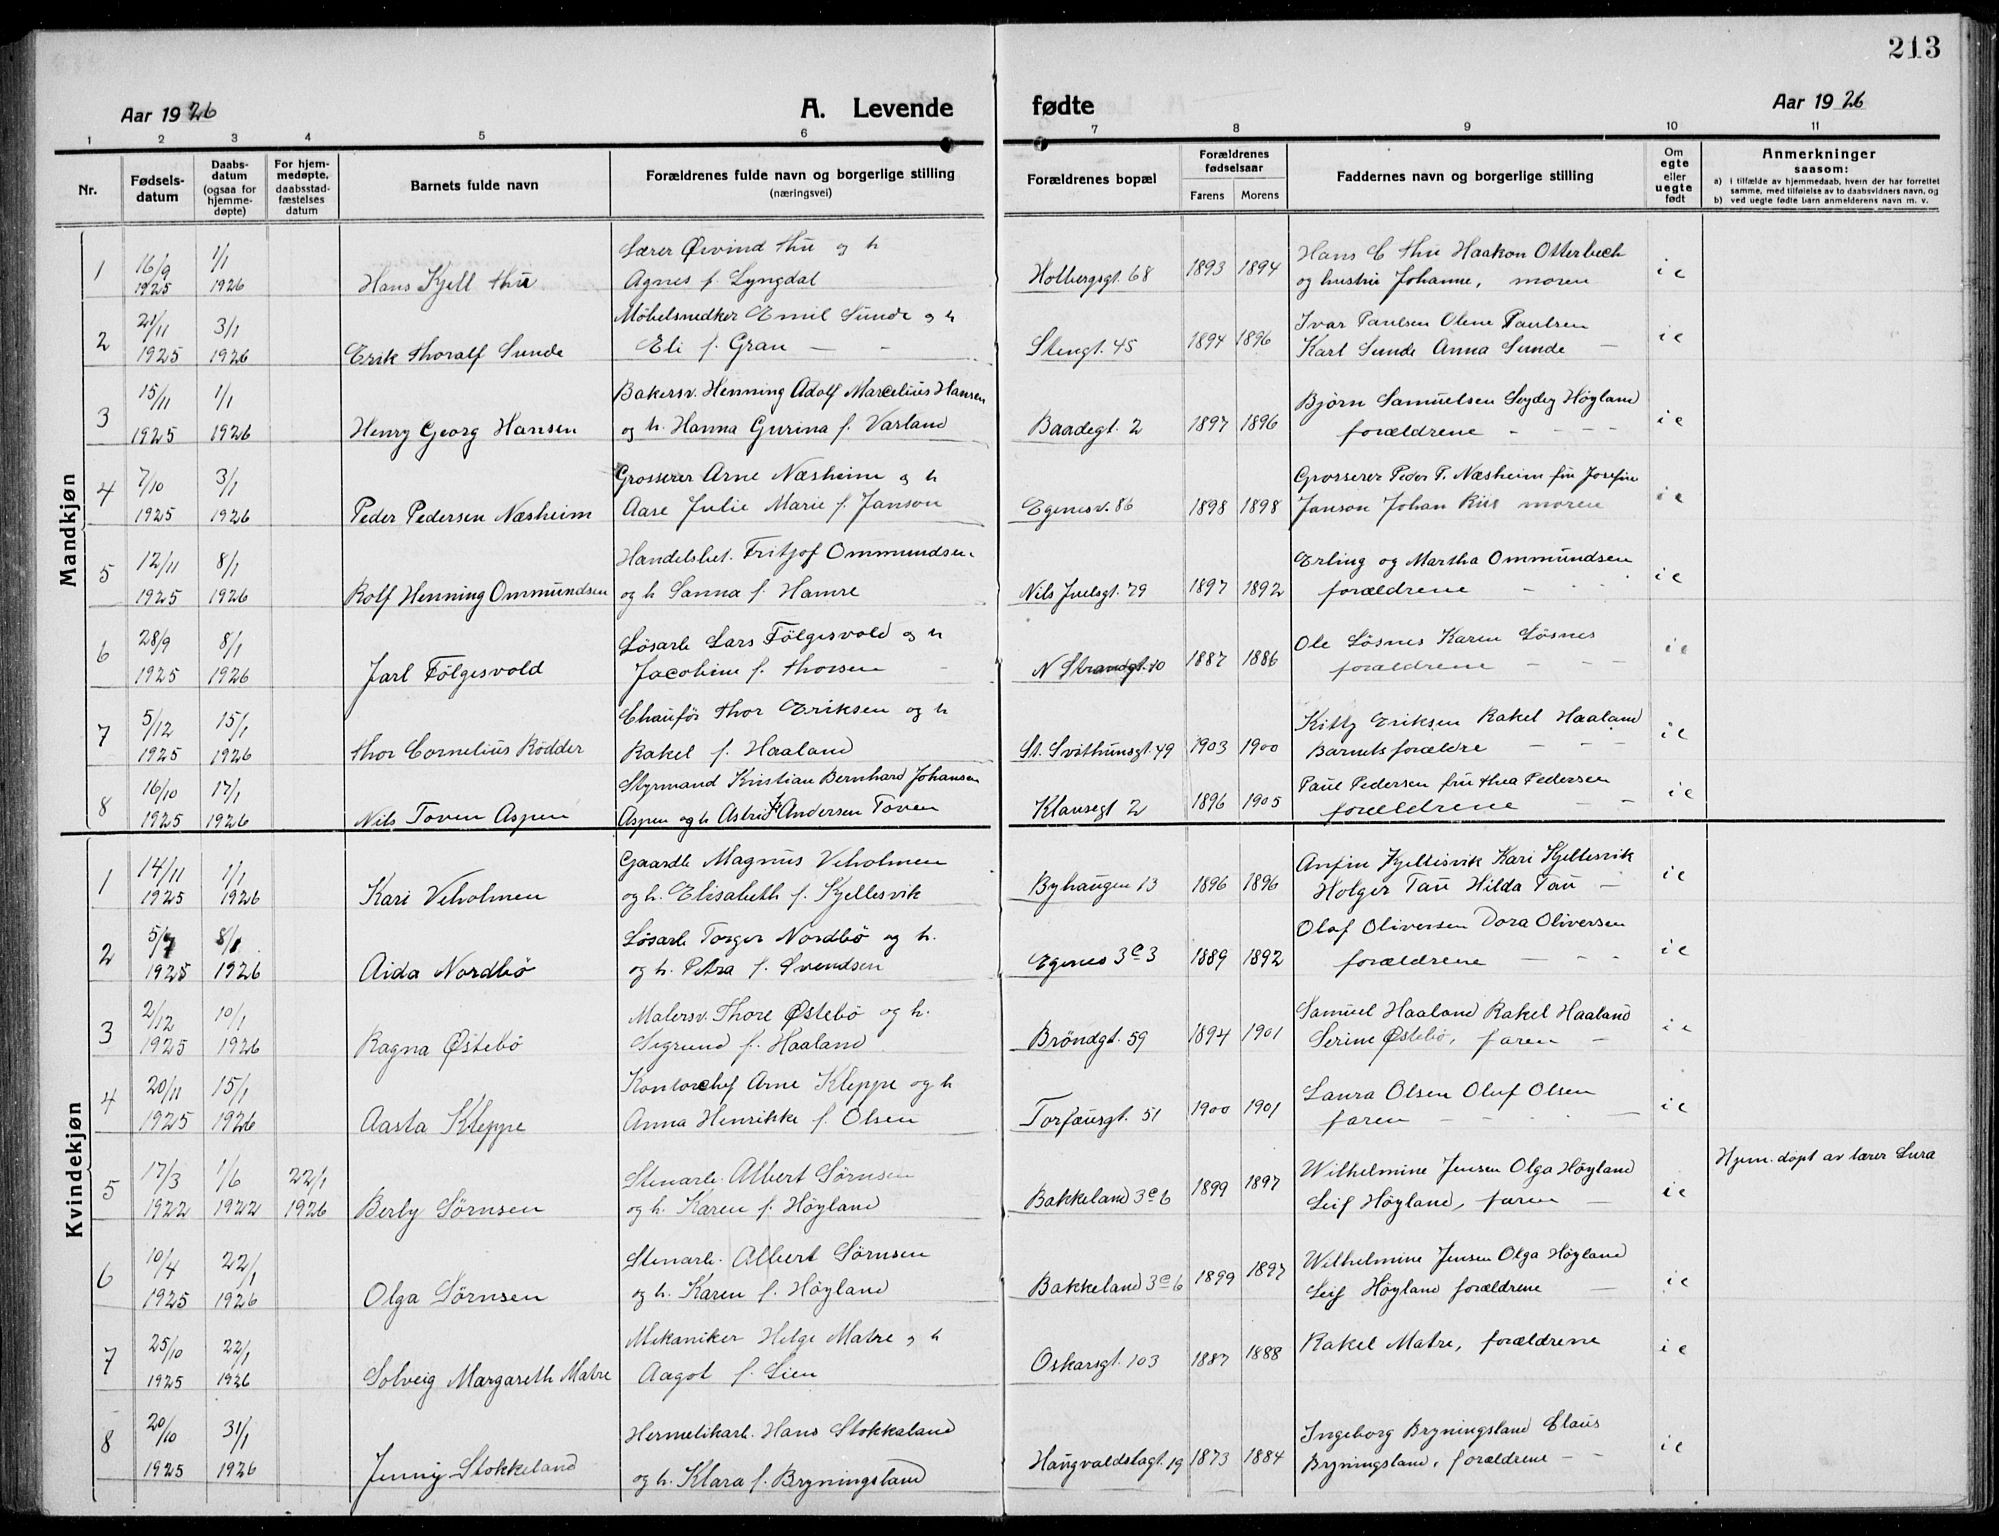 213
Aar 1926
A. Levende fødte
Aar 1926
1 2 3 4 5 6 7 8 9 10 11
Nr.
Fødsels-
datum
Daabs-
datum
(ogsaa for
hjemme-
døpte)
For hjem-
medøpte,
daabsstad-
fæstelses
datum
Barnets fulde navn
Forældrenes fulde navn og borgerlige stilling
(næringsvei)
Forældrenes bopæl
Forældrenes
fødselsaar
Farens Morens
Faddernes navn og borgerlige stilling
Om
egte
eller
uegte
født
Anmerkninger
saasom:
a) i tilfælde av hjemmedaab, hvem der har forrettet
samme, med tilføielse av to daabsvidners navn, og
b) ved uegte fødte barn anmelderens navn m. v.
Mandkjøn
1 16/9 1/1 Lærer Øivind Thu og h Hans C Thu Haakon Otterbech
1925 1926 Hans Kjell Thu Agnes f. Lyngdal Holbergsgt 68 1893 1894 og hustru Johanne, moren i e
2 21/11 3/1 Møbelsnedker Emil Sunde og h Ivar Paulsen Olene Paulsen
1925 1926 Erik Thoralf Sunde Eli f. Gran — - Stengt. 45 1894 1896 Karl Sunde Anna Sunde — i e
3 15/11 1/1 Bakersv. Henning Adolf Marcelius Hansen Bjørn Samuelsen Høyland
1925 1926 Henry Georg Hansen og h. Hanna Gurina f. Varland Baadegt. 2 1897 1896 forældrene - - - - i e
4 7/10 3/1 Grosserer Arne Næsheim og h Grosserer Peder P. Næsheim fru Josefine
1925 1926 Peder Pedersen Næsheim Aase Julie Marie f. Janson Egenesv. 86 1898 1898 Janson Johan Riis moren i e
5 12/11 8/1 Handelsbet. Fritjof Ommundsen Erling og Martha Ommundsen
1925 1926 Rolf Henning Ommundsen og h Sanna f. Hamre Nils Juelsgt. 79 1897 1892 forældrene - - i e
6 28/9 8/1 Løsarb Lars Fölgesvold og h Ole Løsnes Karen Løsnes
1925 1926 Jarl Fölgesvold Jacobine f. Thorsen - N Strandgt. 10 1887 1886 forældrene — - - i e
7 5/12 15/1 Chaufør Thor Eriksen og h Kitty Eriksen Rakel Haaland
1925 1926 Thor Cornelius Rödder Rakel f. Haaland St. Svithunsgt. 49 1903 1900 Barnets forældre — - - i e
8 16/10 17/1 Styrmand Kristian Bernhard Johansen Paul Pedersen fru Thea Pedersen
1925 1926 Nils Toven Aspen Aspen og h Astrid f. Andersen Toven Klausegt 2 1896 1905 forældrene — - i e
Kvindekjøn
1 14/11 1/1 Gaardb Magnus Veholmen Anfin Kjellesvik Kari Kjellesvik
1925 1926 Kari Veholmen og h. Elisabeth f. Kjellesvik Byhaugen 13 1896 1896 Holger Tau Hilda Tau - i e
2 5/7 8/1 Løsarb Torger Nordbö og h. Olaf Oliversen Dora Oliversen
1925 1926 Aida Nordbö og h. Petra f. Svendsen Egenes 3e 3 1889 1892 forældrene — - - i e
3 2/12 10/1 Malersv. Thore Østebö og h. Samuel Haaland Rakel Haaland
1925 1926 Ragna Østebö Sigrund f. Haaland Bröndgt. 59 1894 1901 Serine Østebö, faren — i e
4 20/11 15/1 Kontorchef Arne Kleppe og h Laura Olsen Oluf Olsen
1925 1926 Aasta Kleppe Anna Henrikke f. Olsen Torfæusgt. 51 1900 1901 faren - — i e
5 17/3 1/6 22/1 Stenarb. Albert Sørnsen Wilhelmine Jensen Olga Høyland Hjem. døpt av lærer Sura
1922 1922 1926 Berby Sørnsen og h. Karen f. Høyland Bakkeland 3e 6 1899 1897 Leif Høyland, faren — i e
6 10/4 22/1 Stenarb. Albert Sørnsen Wilhelmine Jensen Olga Høyland
1925 1926 Olga Sørnsen og h. Karen f. Høyland Bakkeland 3e 6 1899 1897 Leif Høyland forældrene — i e
7 25/10 22/1 Mekaniker Helge Matre og h Rakel Matre, forældrene
1925 1926 Solveig Margareth Matre Aagot f. Lien Oskarsgt. 103 1887 1888 i e
8 20/10 31/1 Hermetikarb. Hans Stokkaland Ingeborg Bryningsland Claus
1925 1926 Jenny Stokkeland og h. Klara f. Bryningsland Haugvaldstagt. 19 1873 1884 Bryningsland, forældrene — i e